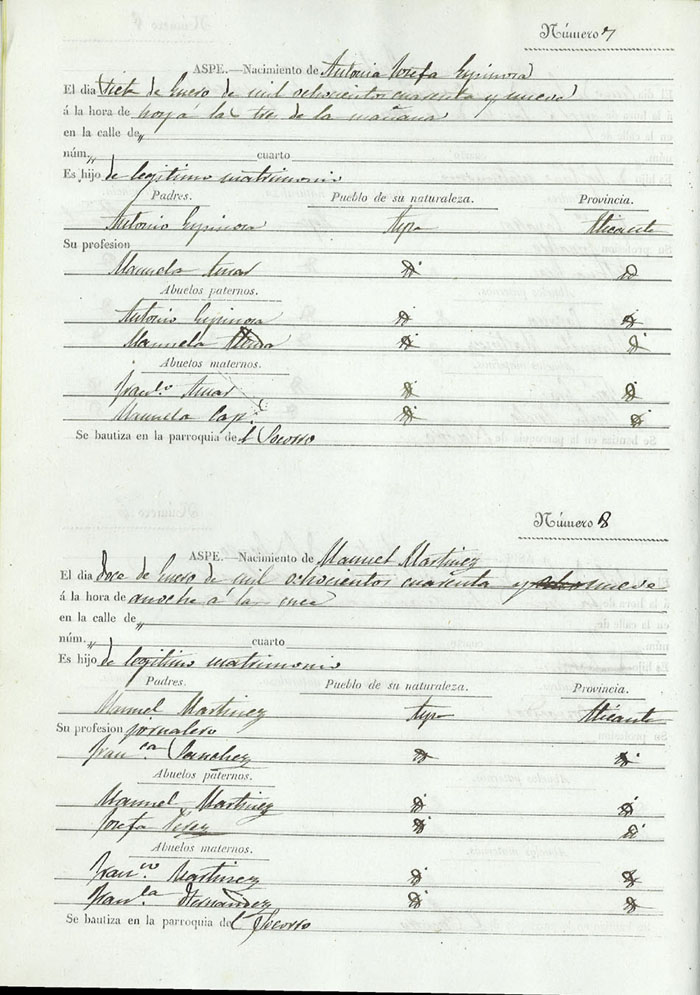 Número 7
ASPE.—Nacimiento de Antonia Josefa Espinosa
El dia siete de Enero de mil ochocientos cuarenta y nueve
á la hora de hoy á la tres de la mañana
en la calle de „
núm. „ cuarto
Es hijo de legitimo matrimonio
Padres. Pueblo de su naturaleza. Provincia.
Antonio Espinosa Aspe Alicante
Su profesion
Manuela id id
Abuelos paternos.
Antonio Espinosa id id
Manuela id id
Abuelos maternos.
Fran.co id id
Manuela id id
Se bautiza en la parroquia del Socorro
Número 8
ASPE.—Nacimiento de Manuel Martinez
El dia doce de Enero de mil ochocientos cuarenta y nueve
á la hora de anoche á las once
en la calle de „
núm. „ cuarto
Es hijo de legitimo matrimonio
Padres. Pueblo de su naturaleza. Provincia.
Manuel Martinez Aspe Alicante
Su profesion jornalero
Fran.ca Sanchez id id
Abuelos paternos.
Manuel Martinez id id
Josefa id id
Abuelos maternos.
Fran.co Martinez id id
Fran.ca Hernandez id id
Se bautiza en la parroquia del Socorro